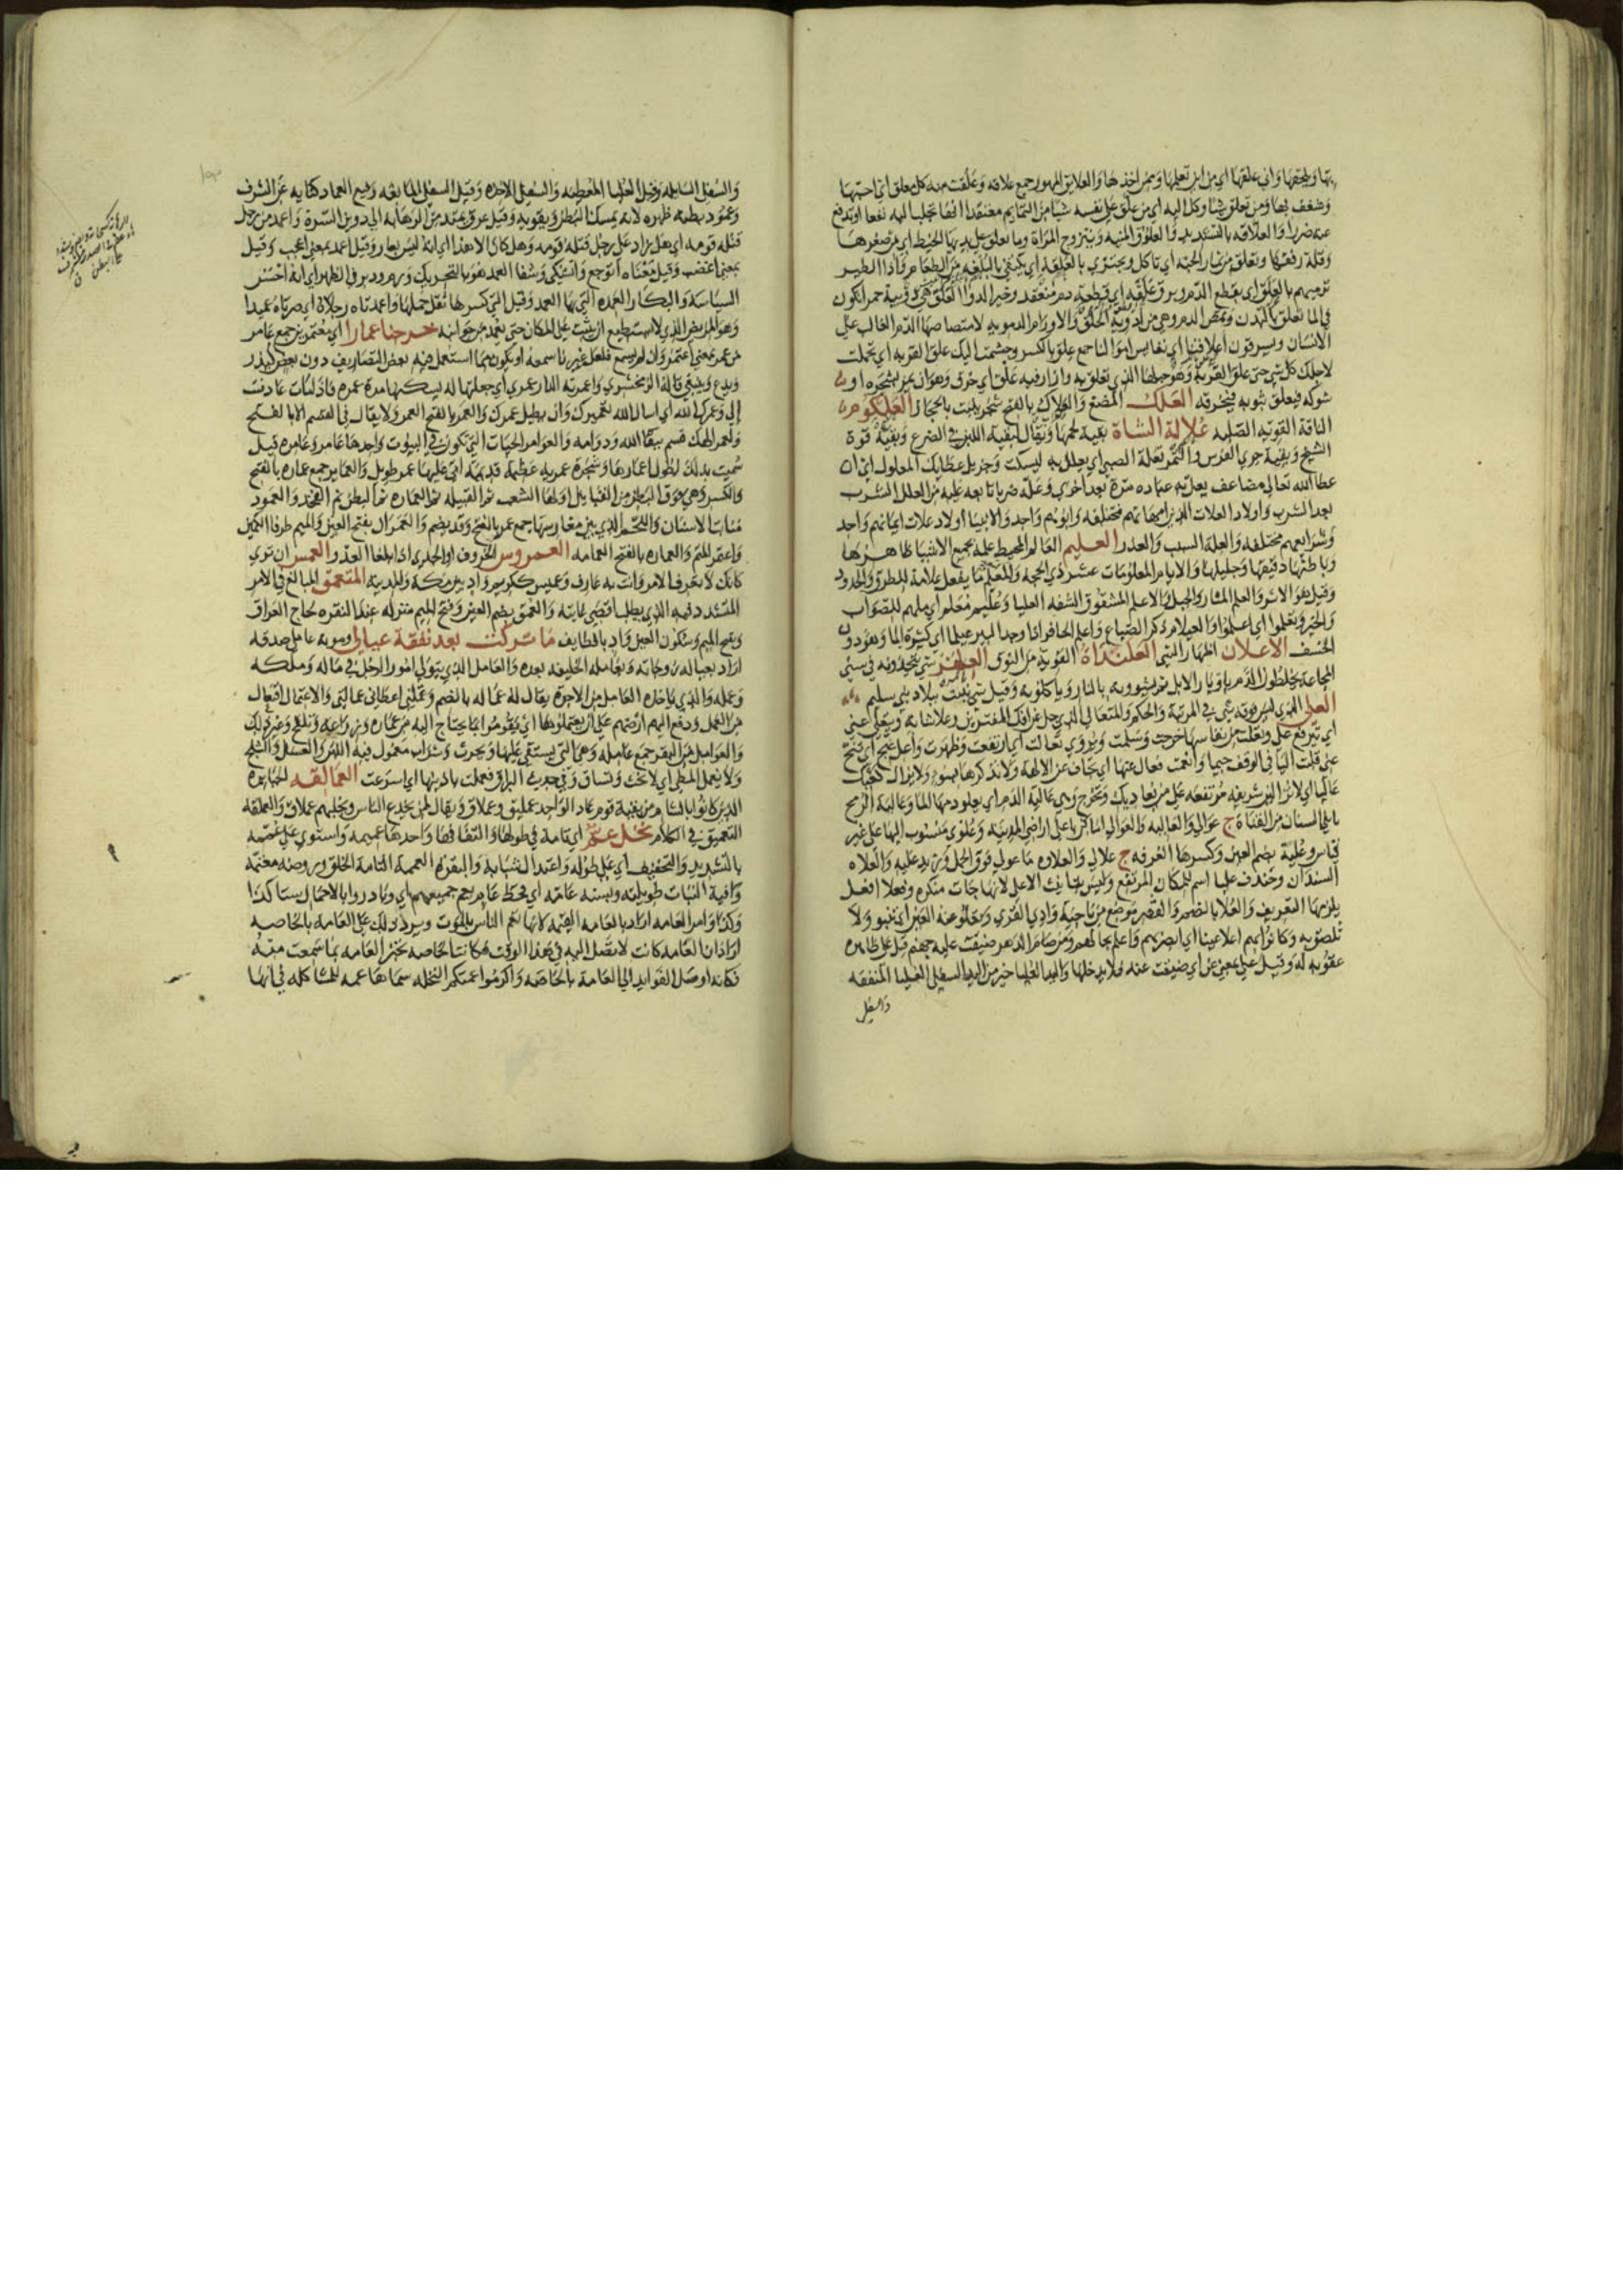 بها ويلحقها واني علقها اي من اين تعلمها وممن اخذها والعلايق المهور جمع علاقة وعلقت منه كل معلق اي احبها
وشغف بها ومن تعلق شيا وكل اليه اي من علق على نفسه شيا من التمايم معتقدا انها تجلب اليه نفعا او تدفع
عنه ضررا والعلاقة بالتشديد والعلوق المنية ويتزوج المراة وما تعلق على يديها الخيط اي من صغرها
وقلة رفقها وتعلق من ثمار الجنة اي تاكل ويجتزي بالعلقة اي يكتفي بالبلغة من الطعام فاذا الطير
ترميهم بالعلق اي بقطع الدم وبرق علقة اي قطعة دم منعقد وخير الدواء العلق هي دويبة حمرا تكون
في الما تعلق بالبدن وتمص الدم وهي من ادوية الحلق والاورام الدموية لامتصاصها الدم الغالب على
الانسان ويسرقون اعلاقنا اي نفايس اموالنا جمع علق بالكسر وجشمت اليك علق القربة اي تحملت
لاجلك كل شي حتى علق القربة وهو حبلها الذي تعلق به وازار فيه علق اي خرق وهو ان يمر بشجرة او
شوكة فيعلق بثوبه فيخرقه العلك المضغ والعلاك بالفتح شجر ينبت بالحجاز العلكوم من
الناقة القوية الصلبة علالة الشاة بقية لحمها ويقال لبقية اللبن في الضرع وبقية قوة
الشيخ وبقية جري الفرس والتمر تعلة الصبي اي يعلل به ليسكت وجزيل عطايك المعلول اي ان
عطا الله تعالى مضاعف يعل به عباده مرة بعد اخرى وعله ضربا تابعه عليه من العلل الشرب
بعد الشرب واولاد العلات الذين امهاتهم مختلفة وابوهم واحد والانبيا اولاد علات ايمانهم واحد
وشرايعهم مختلفة والعلة السبب والعذر العليم العالم المحيط علمه بجميع الاشيا ظاهرها
وباطنها دقيقها وجليلها والايام المعلومات عشر ذي الحجة والمعلم ما يفعل علامة للطرق والحدود
وقيل هو الاثر والعلم المنار والجبل والاعلم المشقوق الشفة العليا وعليم معلم اي ملهم للصواب
والخير وتعلموا اي اعلموا والعيلام ذكر الضباع واعلم الحافر اذا وجد البير عيلما اي كثيرة الما وهو دون
الخسف الاعلان اظهار الشي العلنداة القوية من النوق العلهز شي يتخذونه في سني
المجاعة يخلطون الدم باوبار الابل ثم يشوونه بالنار وياكلونه وقيل شي ينبت ببلاد بني سليم
العلي الذي ليس فوقه شي في المرتبة والحكم والمتعالي الذي جل عن افك المفترين وعلا شانه ويتعلى عني
اي يترفع علي وتعلت من نفاسها خرجت وسلمت ويروى تعالت اي ارتفعت وظهرت واعل عنج اي تنح
عني قلبت اليا في الوقف جيما وانعمت فعال عنها اي تجاف عن الالهة ولا تذكرها بسوء ولا يزال كعبك
عاليا اي لا تزالين شريفة مرتفعة على من يعاديك وتخرج وهي عالية الدم اي يعلو دمها الما وعالية الرمح
ما يلي السنان من القناة ج عوالي والعالية والعوالي اماكن باعلى اراضي المدينة وعلوي منسوب اليها على غير
قياس وعلية بضم العين وكسرها الغرفة ج علالي والعلاوة ما عولي فوق الحمل وزيد عليه والعلاه
السندان وخندف عليا اسم للمكان المرتفع وليس بتانيث الاعلى لانها جات منكرة وفعلا افعل
يلزمها التعريف والعلا بالضم والقصر موضع من ناحية وادي القرى وتعلو عنه العين اي تنبو ولا
تلصق به وكانوا بهم اعلا عينا اي ابصر بهم واعلم بحالهم ومن صام الدهر ضيقت عليه جهنم قيل على ظاهره
عقوبة له وقيل على بمعنى عن اي ضيقت عنه فلا يدخلها واليد العليا خير من اليد السفلى العليا المنفقة
والسفلى
والسفلى السايلة وقيل العليا المعطية والسفلى الاخذة وقيل السفلى المانعة رفيع العماد كناية عن الشرف
وعمود بطنه ظهره لانه يمسك البطن ويقويه وقيل عرق يمتد من الرهابة الى دوين السرة واعمد من رجل
قتله قومه اي هل زاد على رجل قتله قومه وهل كان الا هذا اي انه ليس بعار وقيل اعمد بمعنى اعجب وقيل
بمعنى اغضب وقيل معناه اتوجع واشتكي وشفا العمد هو بالتحريك ورم ودبر في الظهر اي انه احسن
السياسة والبكار العمدة التي بها العمد وقيل التي كسرها ثقل حملها واعمدتاه رجلاه اي صيرتاه عميدا
وهو المريض الذي لا يستطيع ان يثبت على المكان حتى يعمد من جوانبه خرجنا عمارا اي معتمرين جمع عامر
من عمر بمعنى اعتمر وان لم يسمع فلعل غيرنا سمعه او يكون مما استعمل فيه بعض التصاريف دون بعض كيذر
ويدع وينبغي قاله الزمخشري واعمرته الدار عمرى اي جعلتها له ليسكنها مدة عمره فاذا مات عادت
الي وعمرك الله اي اسال الله تعميرك وان يطيل عمرك والعمر بالفتح العمر ولا يقال في القسم الا بالفتح
ولعمر الهك قسم ببقا الله ودوامه والعوامر الحيات التي تكون في البيوت واحدها عامر وعامرة قيل
سميت بذلك لطول اعمارها وشجرة عمرية عظيمة قديمة اتى عليها عمر طويل والعماير جمع عمارة بالفتح
والكسر وهي فوق البطن من القبايل اولها الشعب ثم القبيلة ثم العمارة ثم البطن ثم الفخذ والعمود
منابت الاسنان واللحم الذي بين مغارسها جمع عمر بالفتح وقد يضم والعمران بفتح العين والميم طرفا الكمين
واعتم المعتم والعمارة بالفتح العمامة العمروس الخروف او الجدي اذا بلغا العدو العمس ان تري
كانك لا تعرف الامر وانت به عارف وعميس ككريم واد بين مكة والمدينة المتعمق المبالغ في الامر
المتشدد فيه الذي يطلب اقصى غايته والعمق بضم العين وفتح الميم منزلة عند النقرة لحاج العراق
وبفتح الميم وسكون العين واد بالطايف ما تركت بعد نفقة عيالي ومونة عاملي صدقة
اراد بعياله زوجاته وبعامله الخليفة بعده والعامل الذي يتولى امور الرجل في ماله وملكه
وعمله والذي ياخذه العامل من الاجرة يقال له عمالة بالضم وعملني اعطاني عمالتي والاعتمال افتعال
من العمل ودفع اليهم ارضهم على ان يعتملوها اي يقوموا بما يحتاج اليه من عمارة وزراعة وتلقيح وغير ذلك
والعوامل من البقر جمع عاملة وهي التي يستقى عليها ويحرث وشراب معمول فيه اللبن والعسل والثلج
ولا يعمل المطي اي لا تحث وتساق وفي حديث البراق فعملت باذنيها اي اسرعت العمالقة الجبابرة
الذين كانوا بالشام من بقية قوم عاد الواحد عمليق وعملاق ويقال لمن يخدع الناس ويخلبهم عملاق والعملقة
التعميق في الكلام نخل عم اي تامة في طولها والتفافها واحدها عميمة واستوى على عممه
بالتشديد والتخفيف اي على طوله واعتدال شبابه والبقرة العميمة التامة الخلق وروضة معتمة
وافية النبات طويلته وبسنة عامة اي قحط عام يعم جميعهم اي وبادروا بالاعمال ستا كذا
وكذا وامر العامة اراد بالعامة القيمة لانها تعم الناس بالموت ويرد ذلك على العامة بالخاصة
اراد ان العامة كانت لا تصل اليه في هذا الوقت فكانت الخاصة تخبر العامة بما سمعت منه
فكانه اوصل الفوايد الى العامة بالخاصة واكرموا عمتكم النخلة سماها عمة للمشاكلة في انها